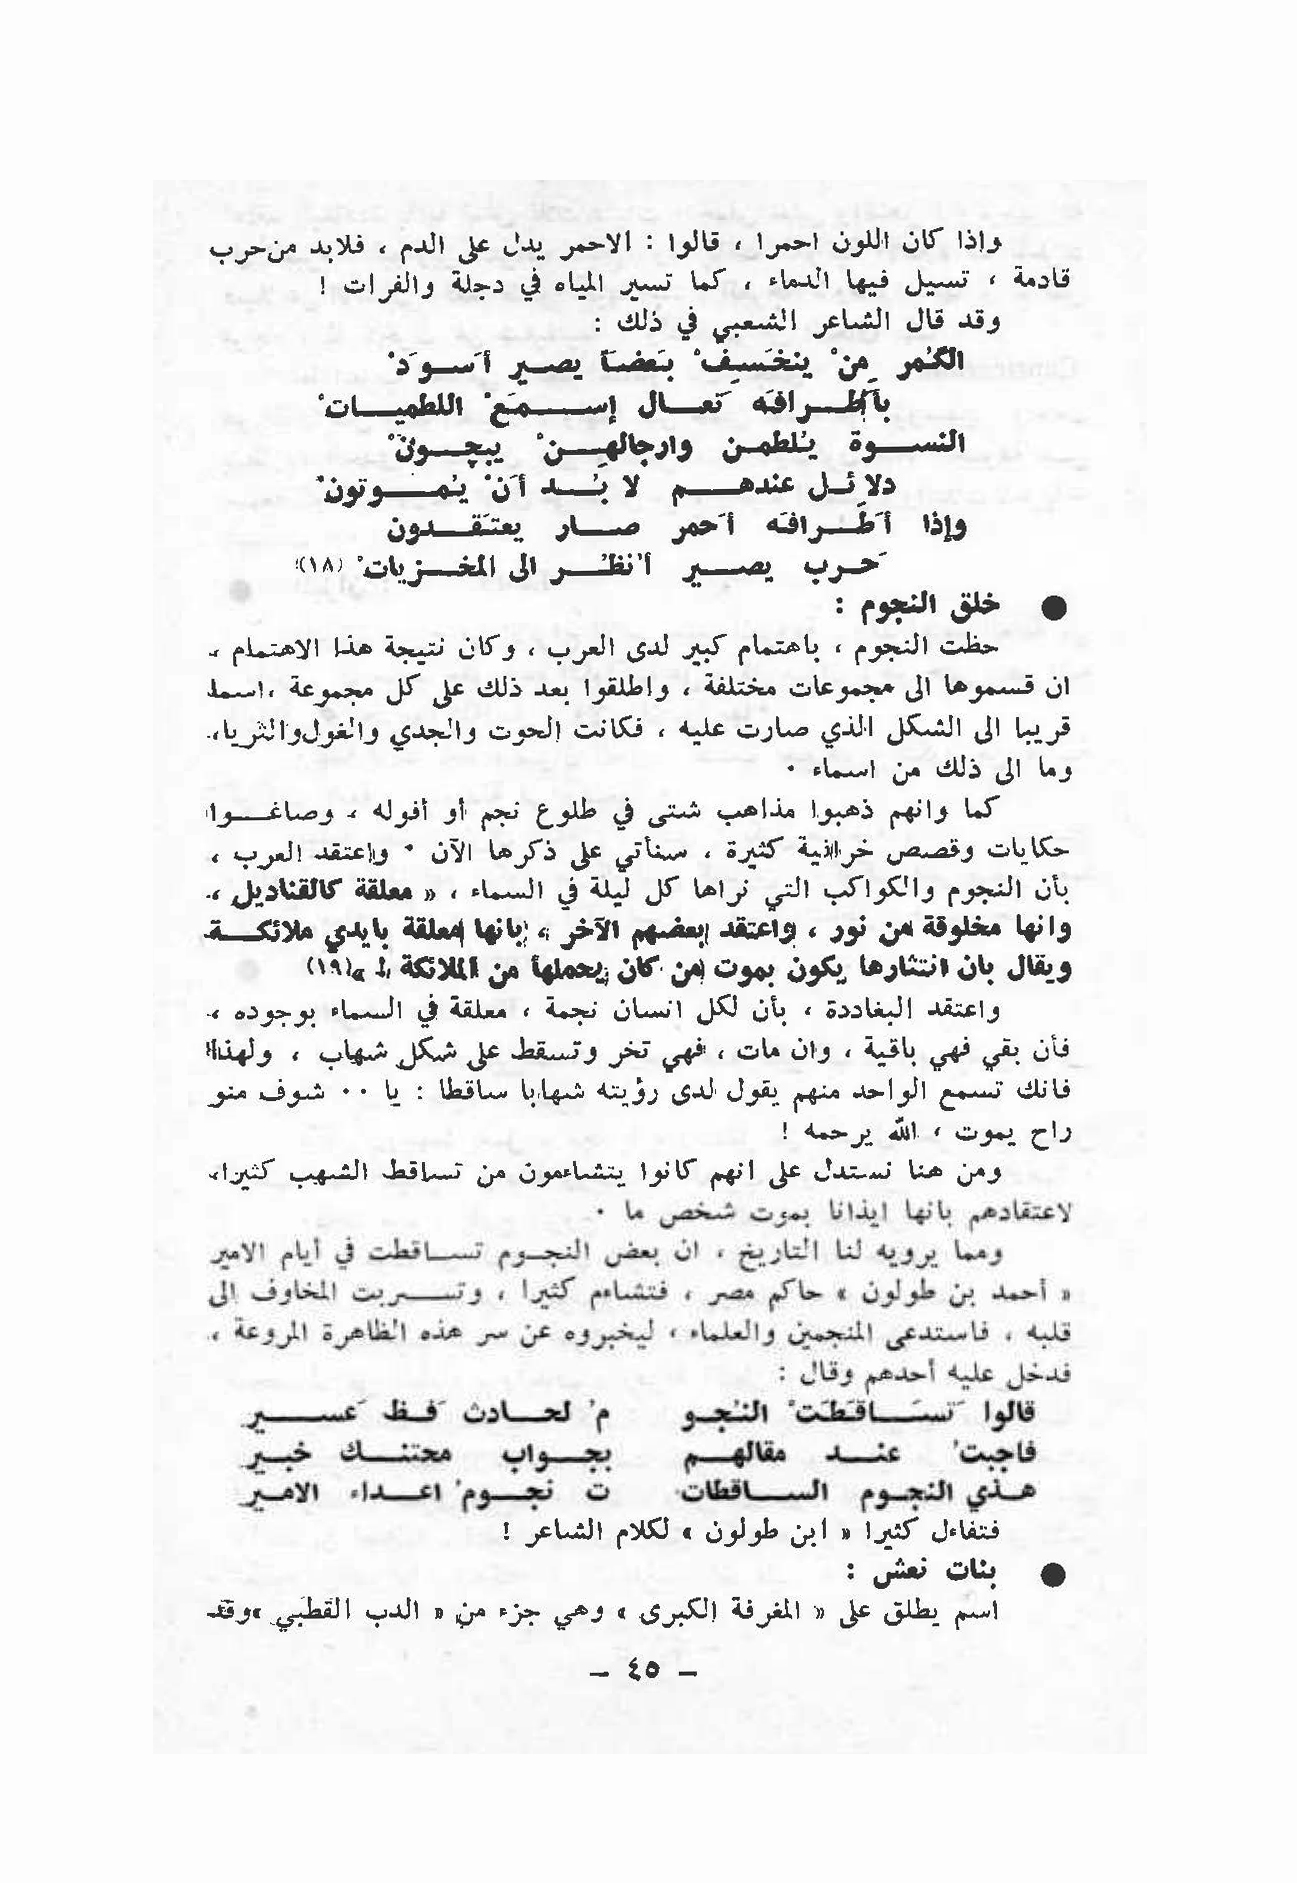 واذا كان اللون احمرا ، قالوا : الاحمر يدل على الدم ، فلابد من حرب
قادمة ، تسيل فيها الدماء ، كما تسير المياه في دجلة والفرات !
وقد قال الشاعر الشعبي في ذلك :
الگمر مِنْ ينخَسِفْ بَعضاً يصير أَسوَدْ
بأَطرافَه تَعال إسمَعْ اللطمياتْ
النسوة يُلطمن وارجالهِنْ يبچونْ
دلائل عندهم لا بُد أَنْ يُموتونْ
وإذا أَطَرافَه أَحمر صار يعتَقدون
حَرب يصير أُنظُر الى المخزياتْ (١٨)
● خلق النجوم :
حظت النجوم ، باهتمام كبير لدى العرب ، وكان نتيجة هذا الاهتمام ،
ان قسموها الى مجموعات مختلفة ، واطلقوا بعد ذلك على كل مجموعة ، اسما
قريبا الى الشكل الذي صارت عليه ، فكانت الحوت والجدي والغول والثريا،
وما الى ذلك من اسماء .
كما وانهم ذهبوا مذاهب شتى في طلوع نجم أو أفوله ، وصاغوا
حكايات وقصص خرافية كثيرة ، سنأتي على ذكرها الآن . واعتقد العرب ،
بأن النجوم والكواكب التي نراها كل ليلة في السماء ، « معلقة كالقناديل ،
وانها مخلوقة من نور ، واعتقد بعضهم الآخر ، بانها معلقة بايدي ملائكة
ويقال بان انتثارها يكون بموت من كان يحملها من الملائكة ! »(١٩)
واعتقد البغاددة ، بأن لكل انسان نجمة ، معلقة في السماء بوجوده ،
فأن بقي فهي باقية ، وان مات ، فهي تخر وتسقط على شكل شهاب ، ولهذا
فانك تسمع الواحد منهم يقول لدى رؤيته شهابا ساقطا : يا .. شوف منو
راح يموت ، الله يرحمه !
ومن هنا نستدل على انهم كانوا يتشاءمون من تساقط الشهب كثيرا،
لاعتقادهم بانها ايذانا بموت شخص ما .
ومما يرويه لنا التاريخ ، ان بعض النجوم تساقطت في أيام الامير
« أحمد بن طولون » حاكم مصر ، فتشاءم كثيرا ، وتسربت المخاوف الى
قلبه ، فاستدعى المنجمين والعلماء ، ليخبروه عن سر هذه الظاهرة المروعة ،
فدخل عليه أحدهم وقال :
قالوا تَسَاقَطَتْ النُجو مُ لحادث فَظ عَسير
فاجبتُ عند مقالهم بجواب محتنك خبير
هذي النجوم الساقطات ت نجومُ اعداء الامير
فتفاءل كثيرا « ابن طولون » لكلام الشاعر !
● بنات نعش :
اسم يطلق على « المغرفة الكبرى » وهي جزء من « الدب القطبي » وقد
– ٤٥ –